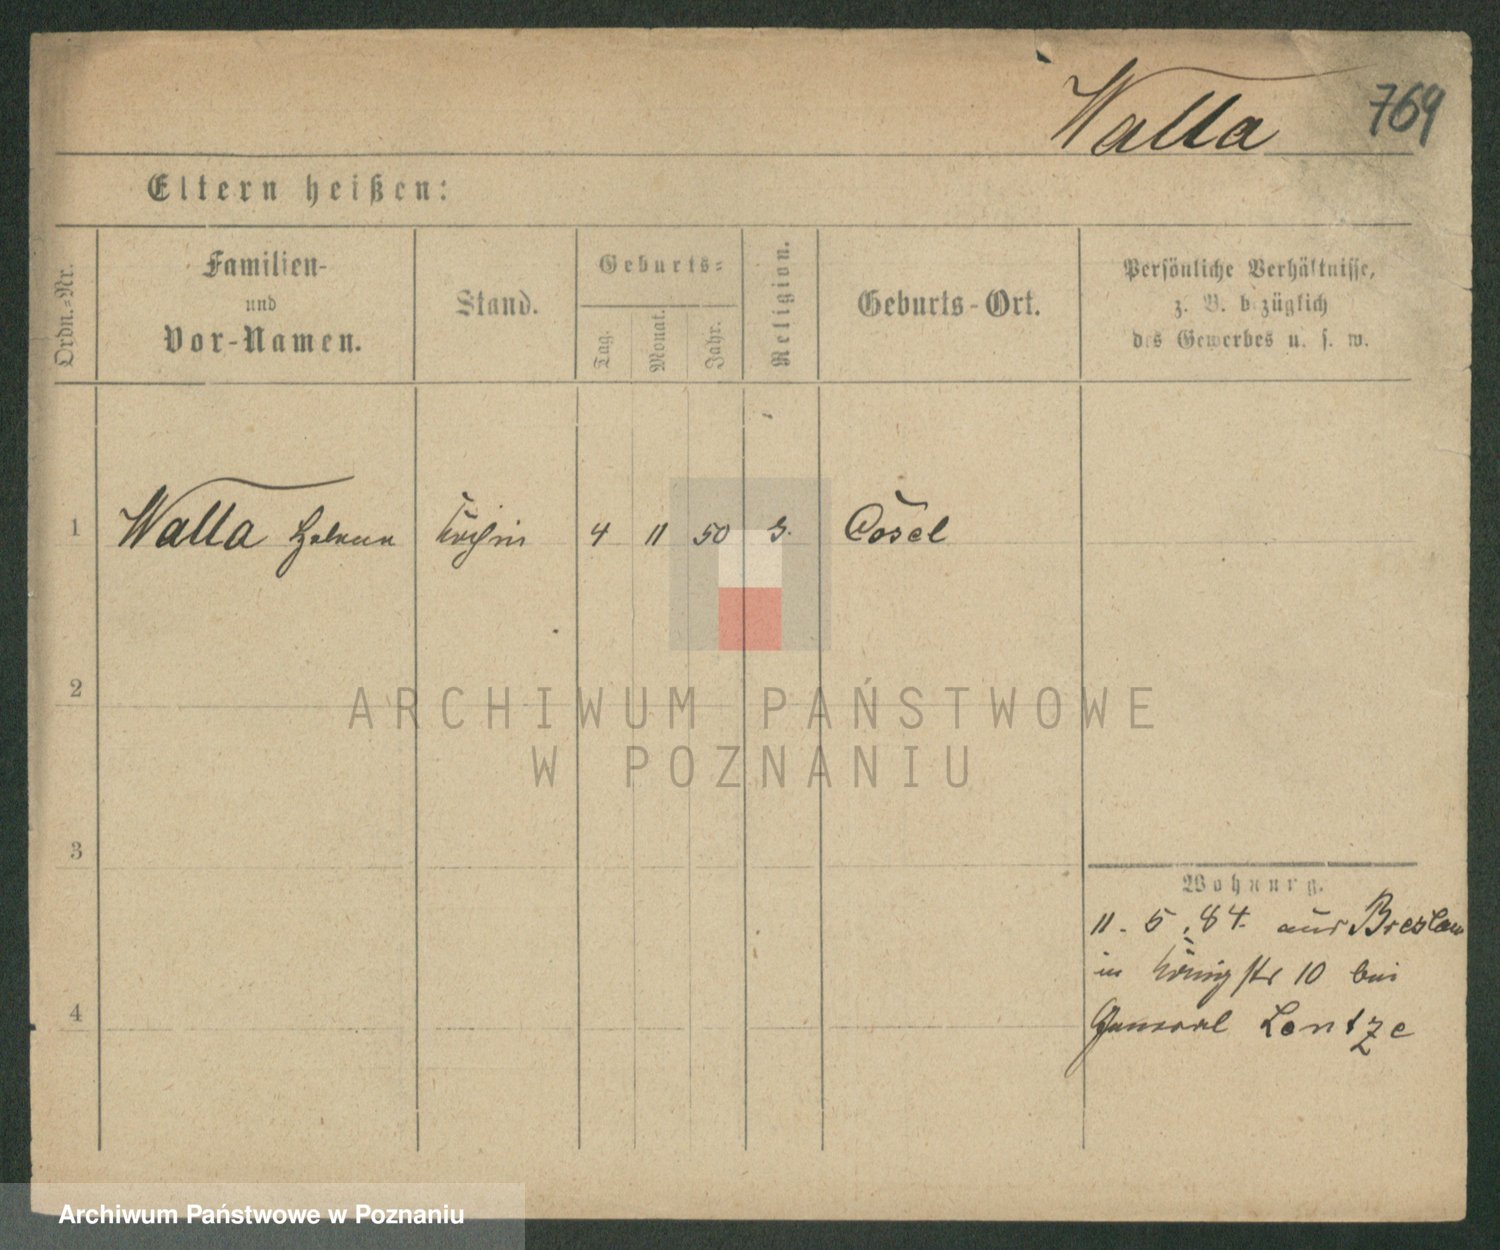 Walla 769
Eltern heißen:
Ordn.-Nr.
Familien-
und
Vor-Namen.
Stand.
Geburts-
Tag.
Monat.
Jahr.
Religion.
Geburts-Ort.
Persönliche Verhältnisse,
z. B. bezüglich
des Gewerbes u. s. w.
1 Walla Helene Köchin 4 11 50 Cosel
2
3
4
Wohnung.
11. 5. 84. aus Breslau
in Königstr 10 bei
General Lentze
ARCHIWUM PAŃSTWOWE
W POZNANIU
Archiwum Państwowe w Poznaniu